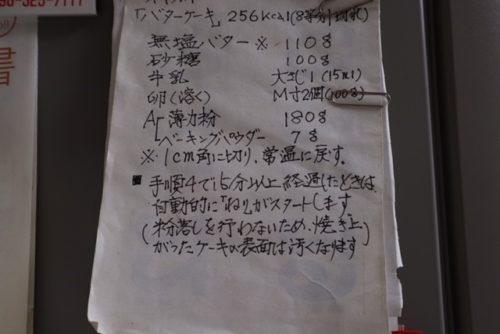 「バターケーキ」 256Kcal(8等分1切れ)
無塩バター ※ 110g
砂糖 100g
牛乳 大さじ1(15ml)
卵(溶く) M寸2個(100g)
A 薄力粉 180g
ベーキングパウダー 7g
※1cm角に切り、常温に戻す。
■ 手順4で15分以上経過したときは
自動的に「ねり」がスタートします
(粉落しを行わないため、焼き上
がったケーキの表面は汚くなります)
書